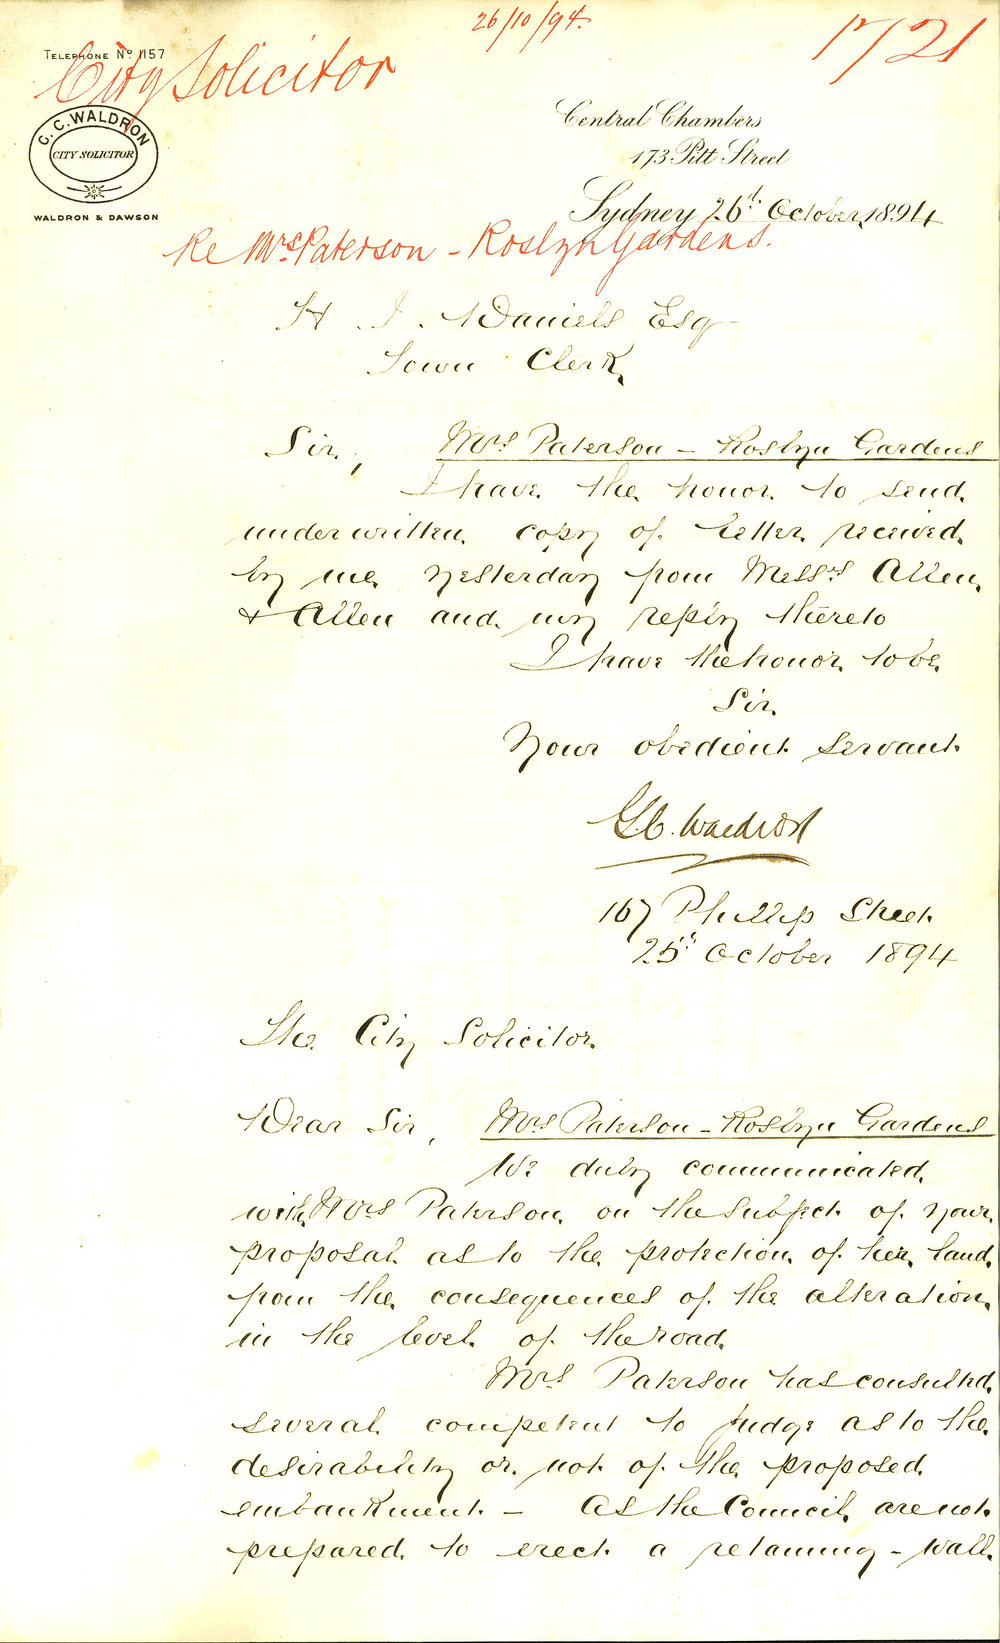 26/10/94.
1721
TELEPHONE Nº 1157
City Solicitor
G. C. WALDRON
CITY SOLICITOR
WALDRON & DAWSON
Central Chambers
173 Pitt Street
Sydney 26th October 1894
Re Mrs Paterson - Roslyn Gardens.
H. J. Daniels Esq
Town Clerk
Sir, Mrs Paterson - Roslyn Gardens
I have the honor to send
underwritten copy of letter received
by me yesterday from Messrs Allen
& Allen and my reply thereto
I have the honor to be
Sir
Your obedient servant
G.C. Waldron
167 Phillip Street
25th October 1894
The City Solicitor
Dear Sir, Mrs Paterson - Roslyn Gardens
We duly communicated
with Mrs Paterson on the subject of your
proposal as to the protection of her land
from the consequences of the alteration
in the level of the road
Mrs Paterson has consulted
several competent to judge as to the
desirability or not of the proposed
embankment - As the Council are not
prepared to erect a retaining-wall